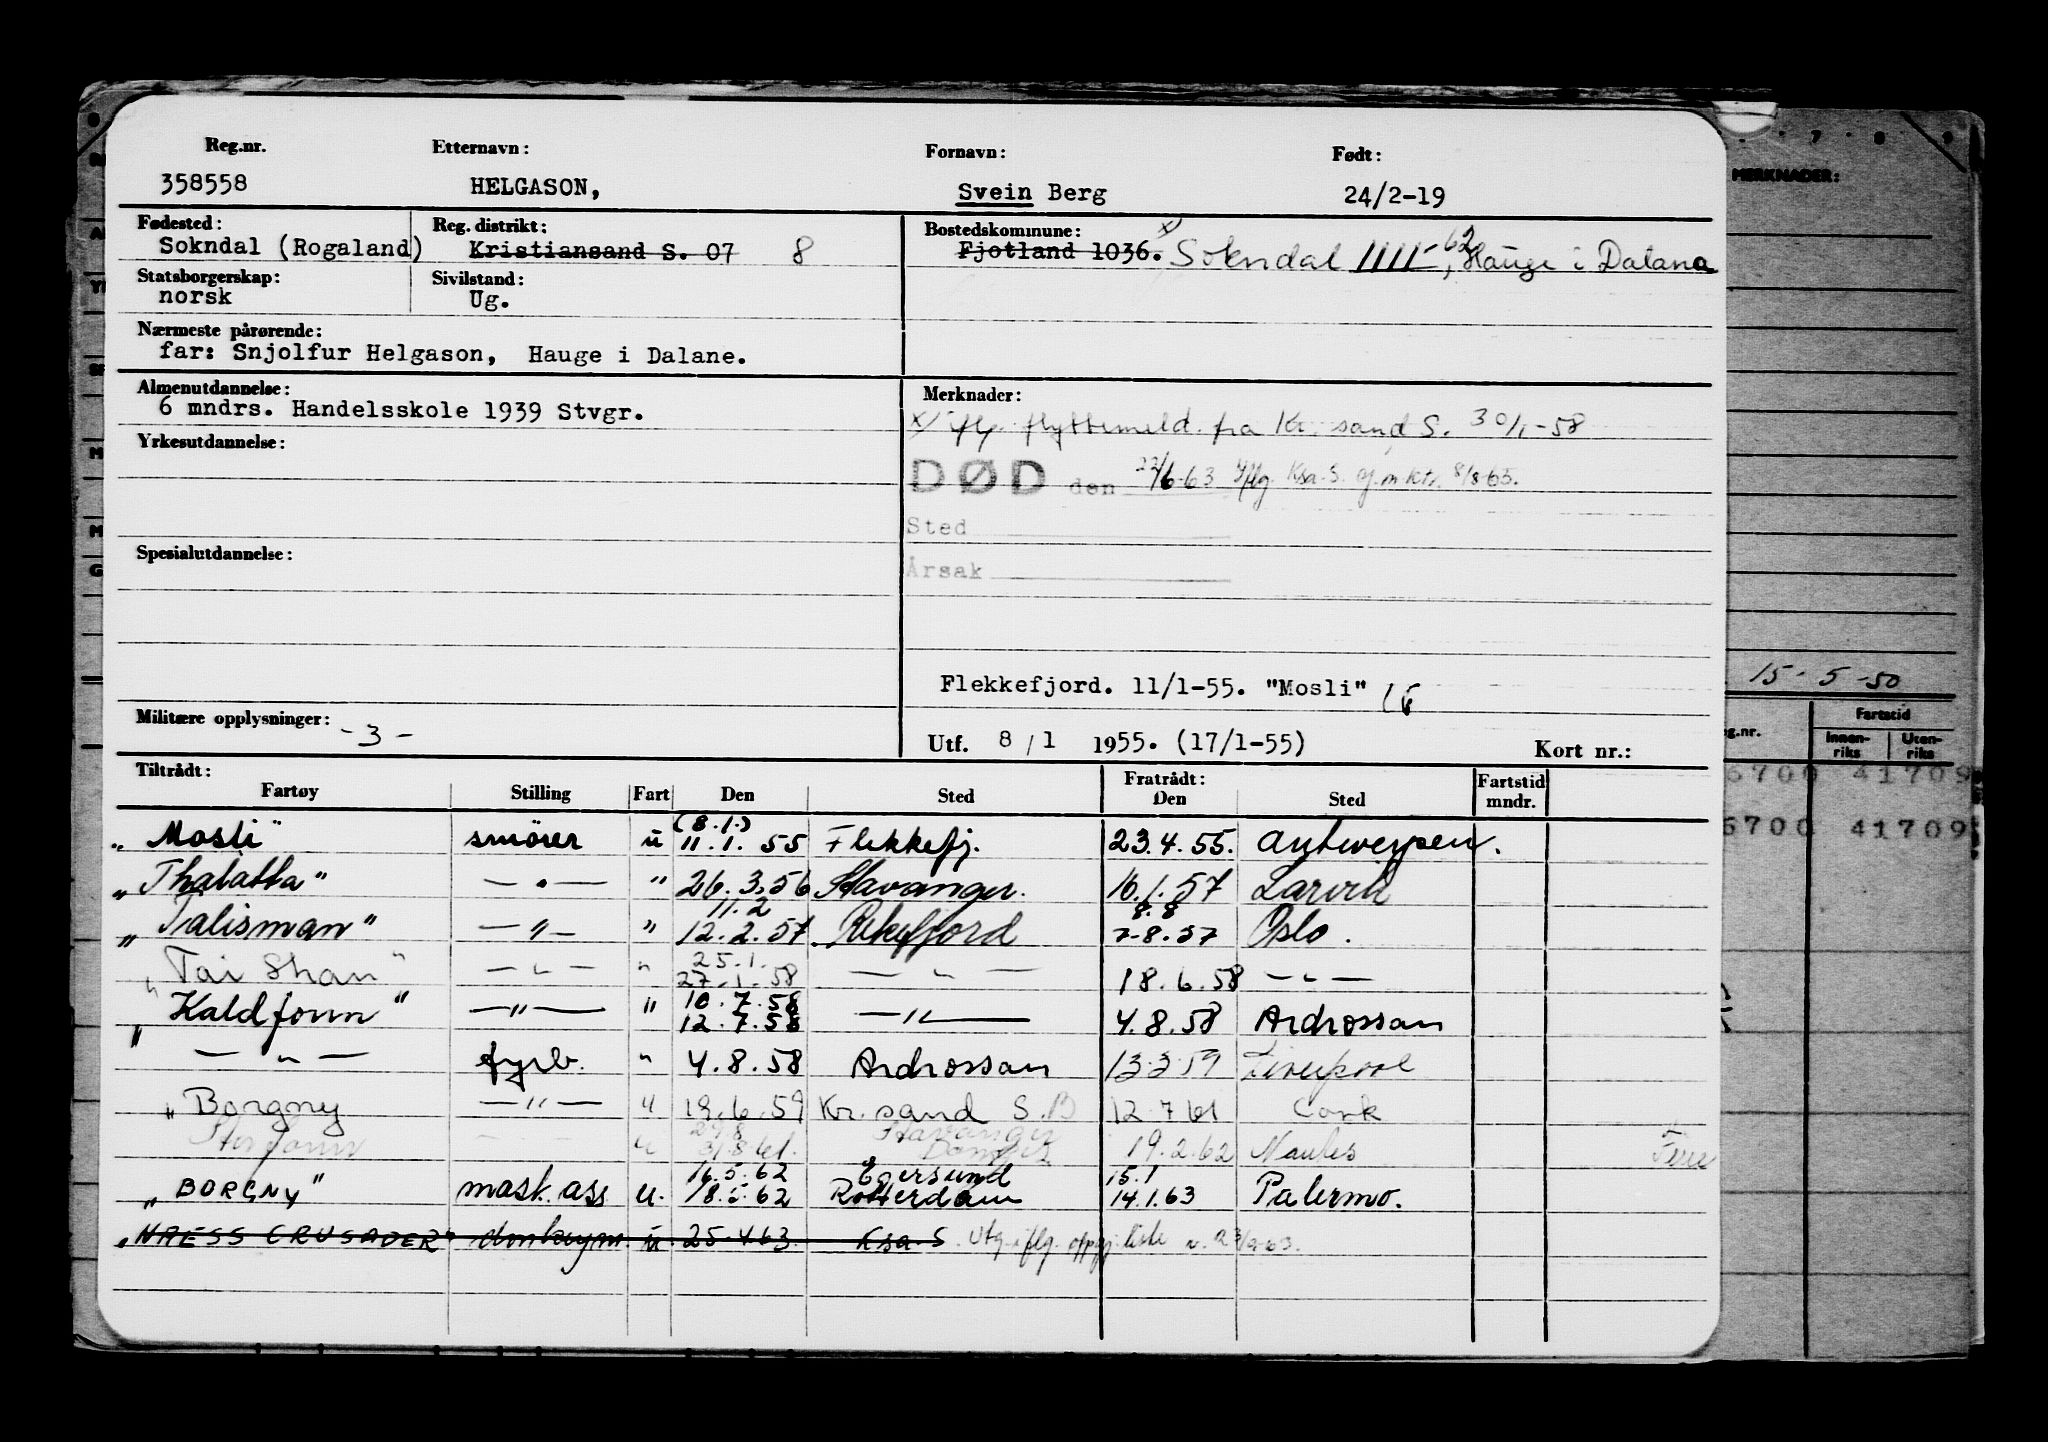 Reg.nr. Etternavn: Fornavn: Født:
358558 HELGASON, Svein Berg 24/2-19
Fødested: Reg. distrikt: Bostedskommune:
Sokndal (Rogaland) Kristiansand S. 07 8 Fjotland 1036. x) Sokndal 1111-62, Hauge i Dalana
Statsborgerskap: Sivilstand:
norsk Ug.
Nærmeste pårørende:
far: Snjolfur Helgason, Hauge i Dalane.
Almenutdannelse: Merknader:
6 mndrs. Handelsskole 1939 Stvgr.
x) iflg. flyttemeld. fra Kr.sand S. 30/1-58
Yrkesutdannelse:
DØD den 22/6-63 iflg. Ksa. S. mktr. 8/8-65.
Sted
Årsak
Spesialutdannelse:
Flekkefjord. 11/1-55. "Mosli"
Militære opplysninger: -3-
Utf. 8/1 1955. (17/1-55) Kort nr.:
Tiltrådt: Fratrådt:
Fartøy Stilling Fart Den Sted Den Sted Fartstid mndr.
(8.1.)
"Mosli" smörer u 11.1.55 Flekkefj. 23.4.55. Antwerpen.
"Thalatta" — " — " 26.3.56 Stavanger. 16.1.57 Larvik
11.2 8.8
"Talisman" — " — " 12.2.57 Rekefjord 7-8.57 Oslo.
25.1.
"Tai Shan" — " — " 27.1.58 — " — 18.6.58 — " —
10.7.58
"Kaldfonn" — " — " 12.7.58 — " — 4.8.58 Ardrossan
— " — fyrb. " 4.8.58 Ardrossan 13.3.59 Liverpool
"Borgny — " — u 19.6.59 Kr.sand S. 12.7.61 Cork
29.8 Stavanger
Sterfonn — u 31.8.61. Danzig 19.2.62 Nantes Ferie
16.5.62 Egersund 15.1
"BORGNY" mask.ass u. 18.5.62 Rotterdam 14.1.63 Palermo.
"NAESS CRUSADER" donkeym. u. 25.4.63. Ksa. S. Utg. iflg. oppgj.liste
MERKNADER:
15-5-50
Fartstid
Innen-riks Uten-riks
6700 41709
6700 41709